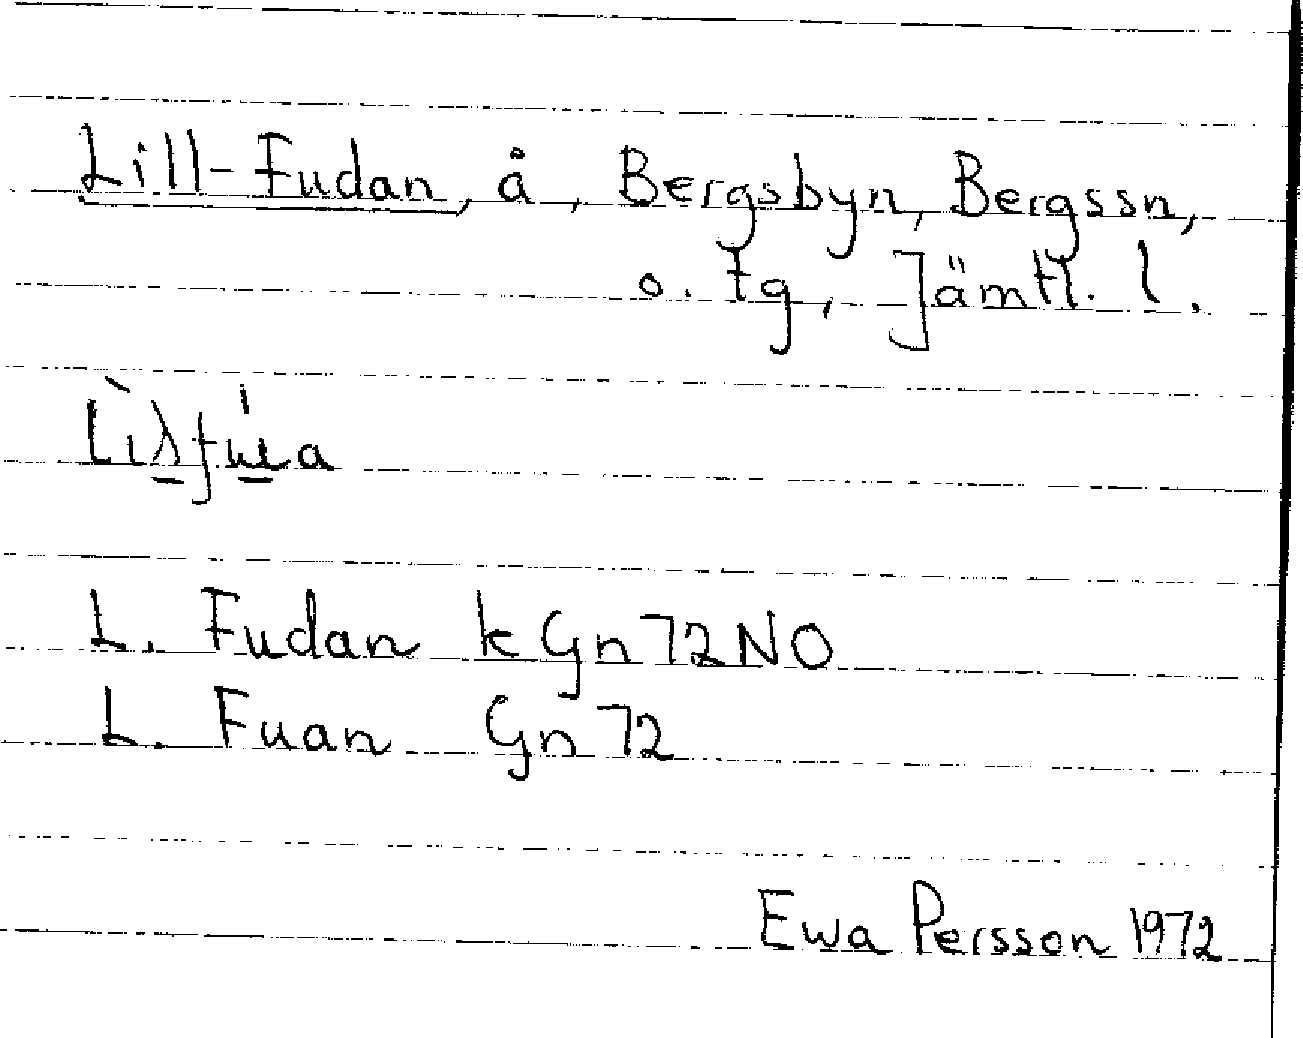 Lill-Fudan, å, Bergsbyn, Bergssn,
o. tg, Jämtl. l.
L. Fudan k Gn 72NO
L. Fuan Gn 72
Ewa Persson 1972